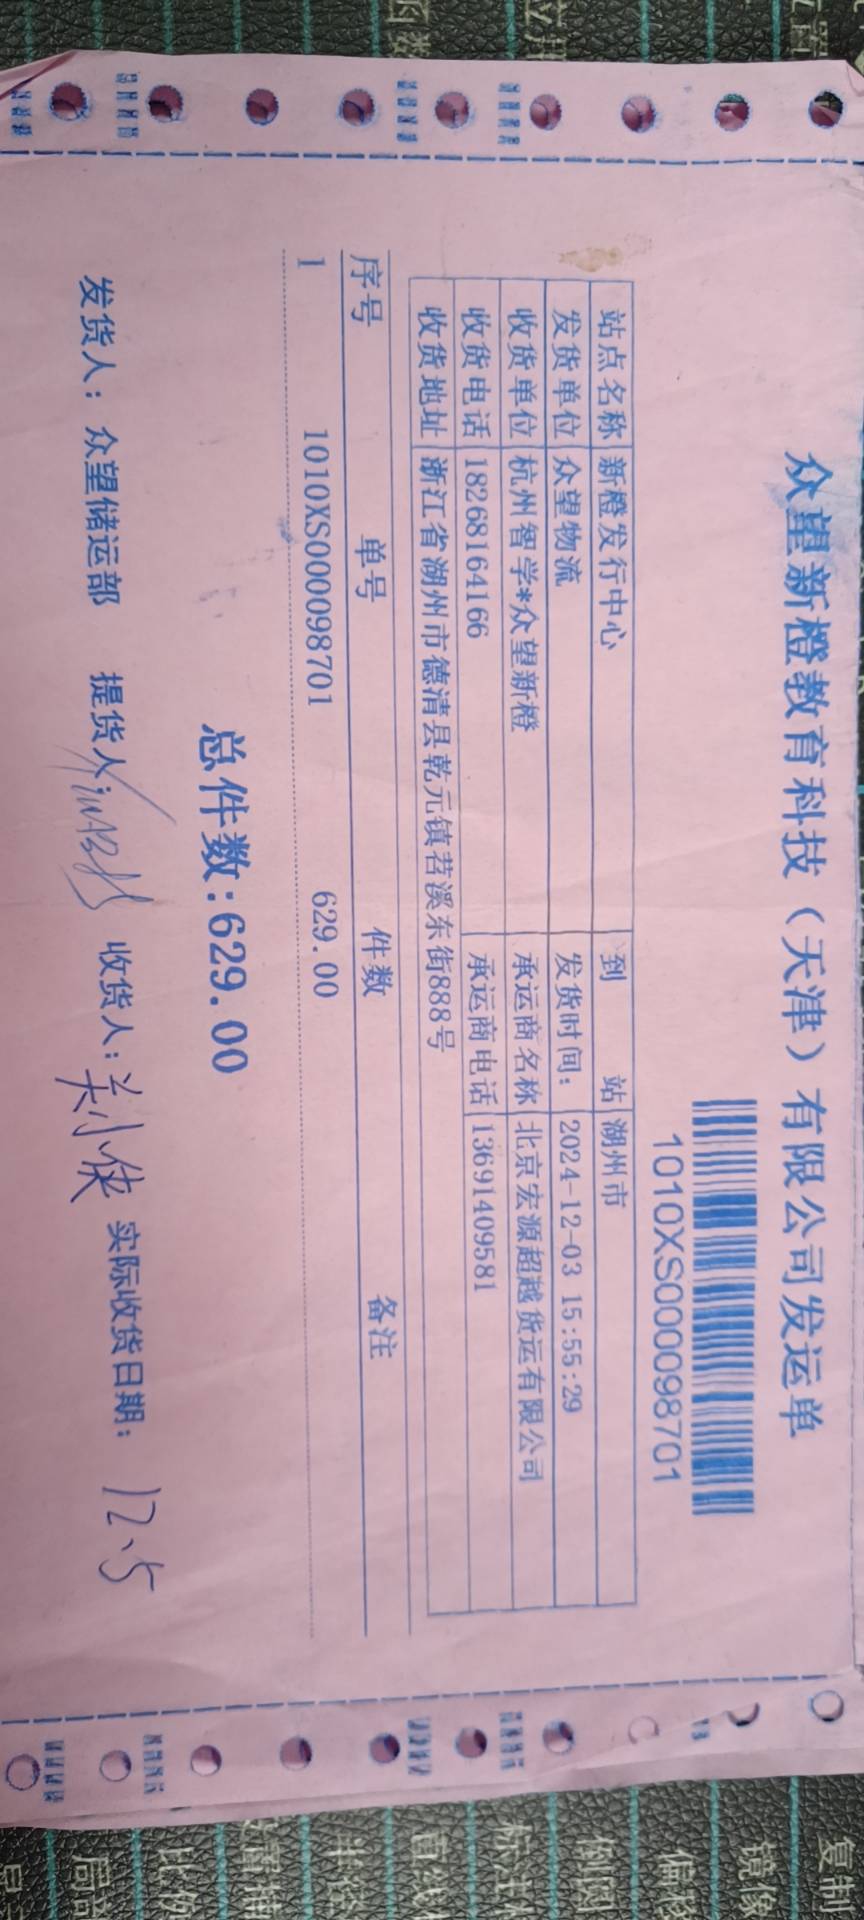 众望新橙教育科技（天津）有限公司发运单
1010XS000098701
站点名称 新橙发行中心 到 站 湖州市
发货单位 众望物流 发货时间： 2024-12-03 15:55:29
收货单位 杭州智学*众望新橙 承运商名称 北京宏源超越货运有限公司
收货电话 18268164166 承运商电话 13691409581
收货地址 浙江省湖州市德清县乾元镇苕溪东街888号
序号 单号 件数 备注
1 1010XS000098701 629.00
总件数:629.00
发货人：众望储运部 提货人 收货人： 实际收货日期： 12.5
复制
镜像
偏移
倒圆
半径
比例